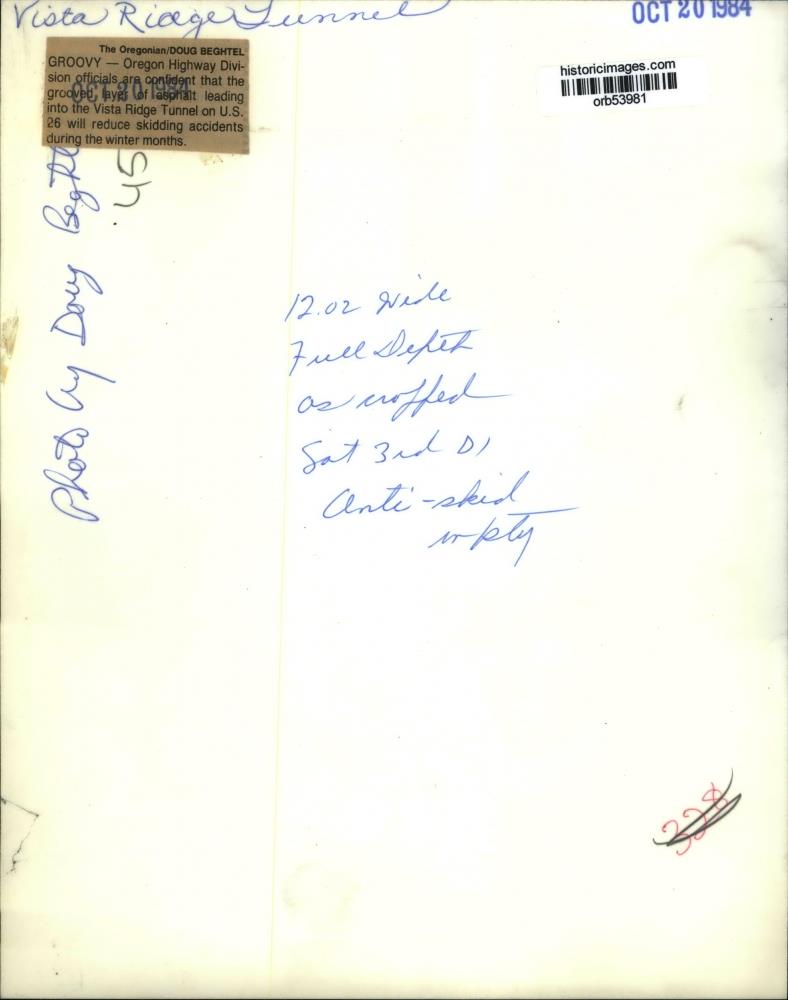 Vista Ridge Tunnel
OCT 20 1984
The Oregonian/DOUG BEGHTEL
GROOVY — Oregon Highway Divi-
sion officials are confident that the
grooved layer of asphalt leading
into the Vista Ridge Tunnel on U.S.
26 will reduce skidding accidents
during the winter months.
OCT 20 1984
historicimages.com
orb53981
Photo by Doug Beghtel
45
12.02 wide
Full Depth
as cropped
Sat 3rd D1
Anti-skid
328